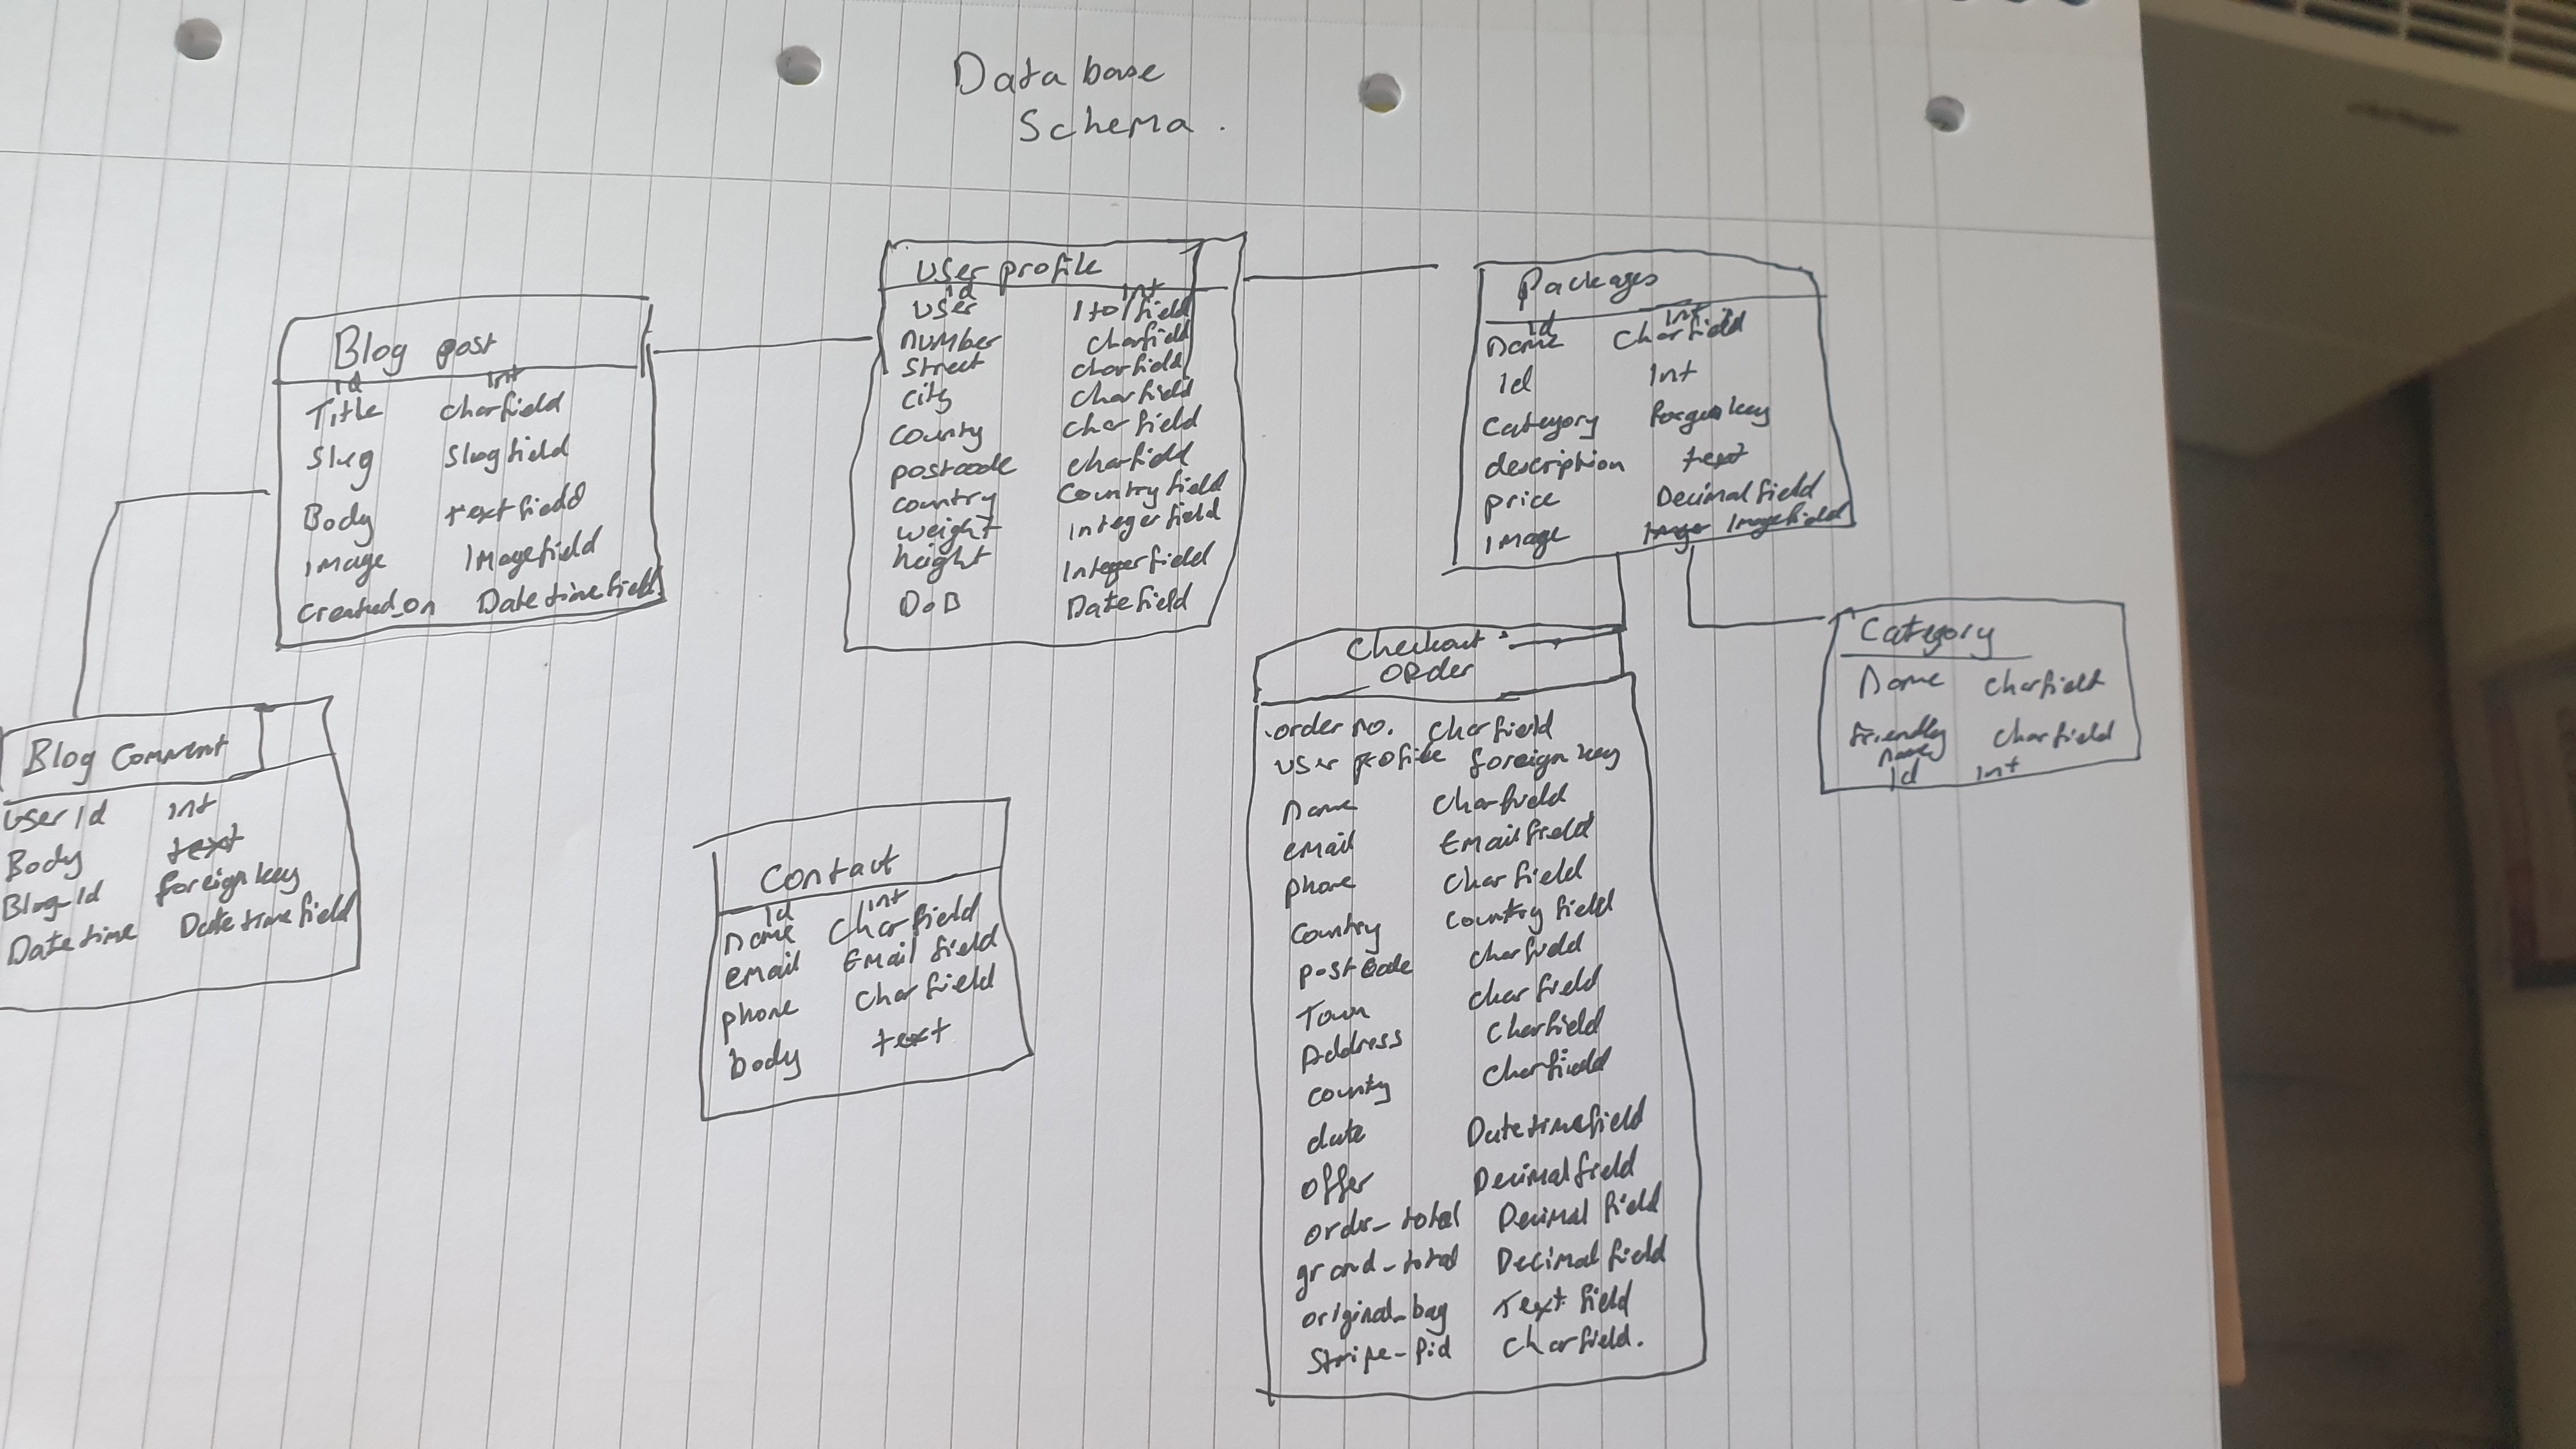 Data base
Schema.
Blog post
id int
Title Charfield
Slug Slugfield
Body textfield
Image Imagefield
Created_on Datetimefield
User profile
id int
User 1to1field
number charfield
Street charfield
City charfield
County charfield
postcode charfield
country Countryfield
weight Integerfield
height Integerfield
DoB Datefield
Packages
id int
Name Charfield
Id Int
Category
description text
price Decimalfield
Image Imagefield
Category
Name Charfield
friendly
name charfield
Id int
Blog Comment
User Id int
Body text
Blog-Id foreign key
Datetime Datetimefield
Contact
id int
Name Charfield
email Email field
phone Charfield
body text
Checkout
ORder
order no. Charfield
user profile foreign key
Name Charfield
email Emailfield
phone Charfield
Country country field
postcode charfield
Town charfield
Address Charfield
county Charfield
date Datetimefield
offer Decimalfield
order_total Decimal field
grand_total Decimal field
original_bag Text field
Stripe-Pid Charfield.